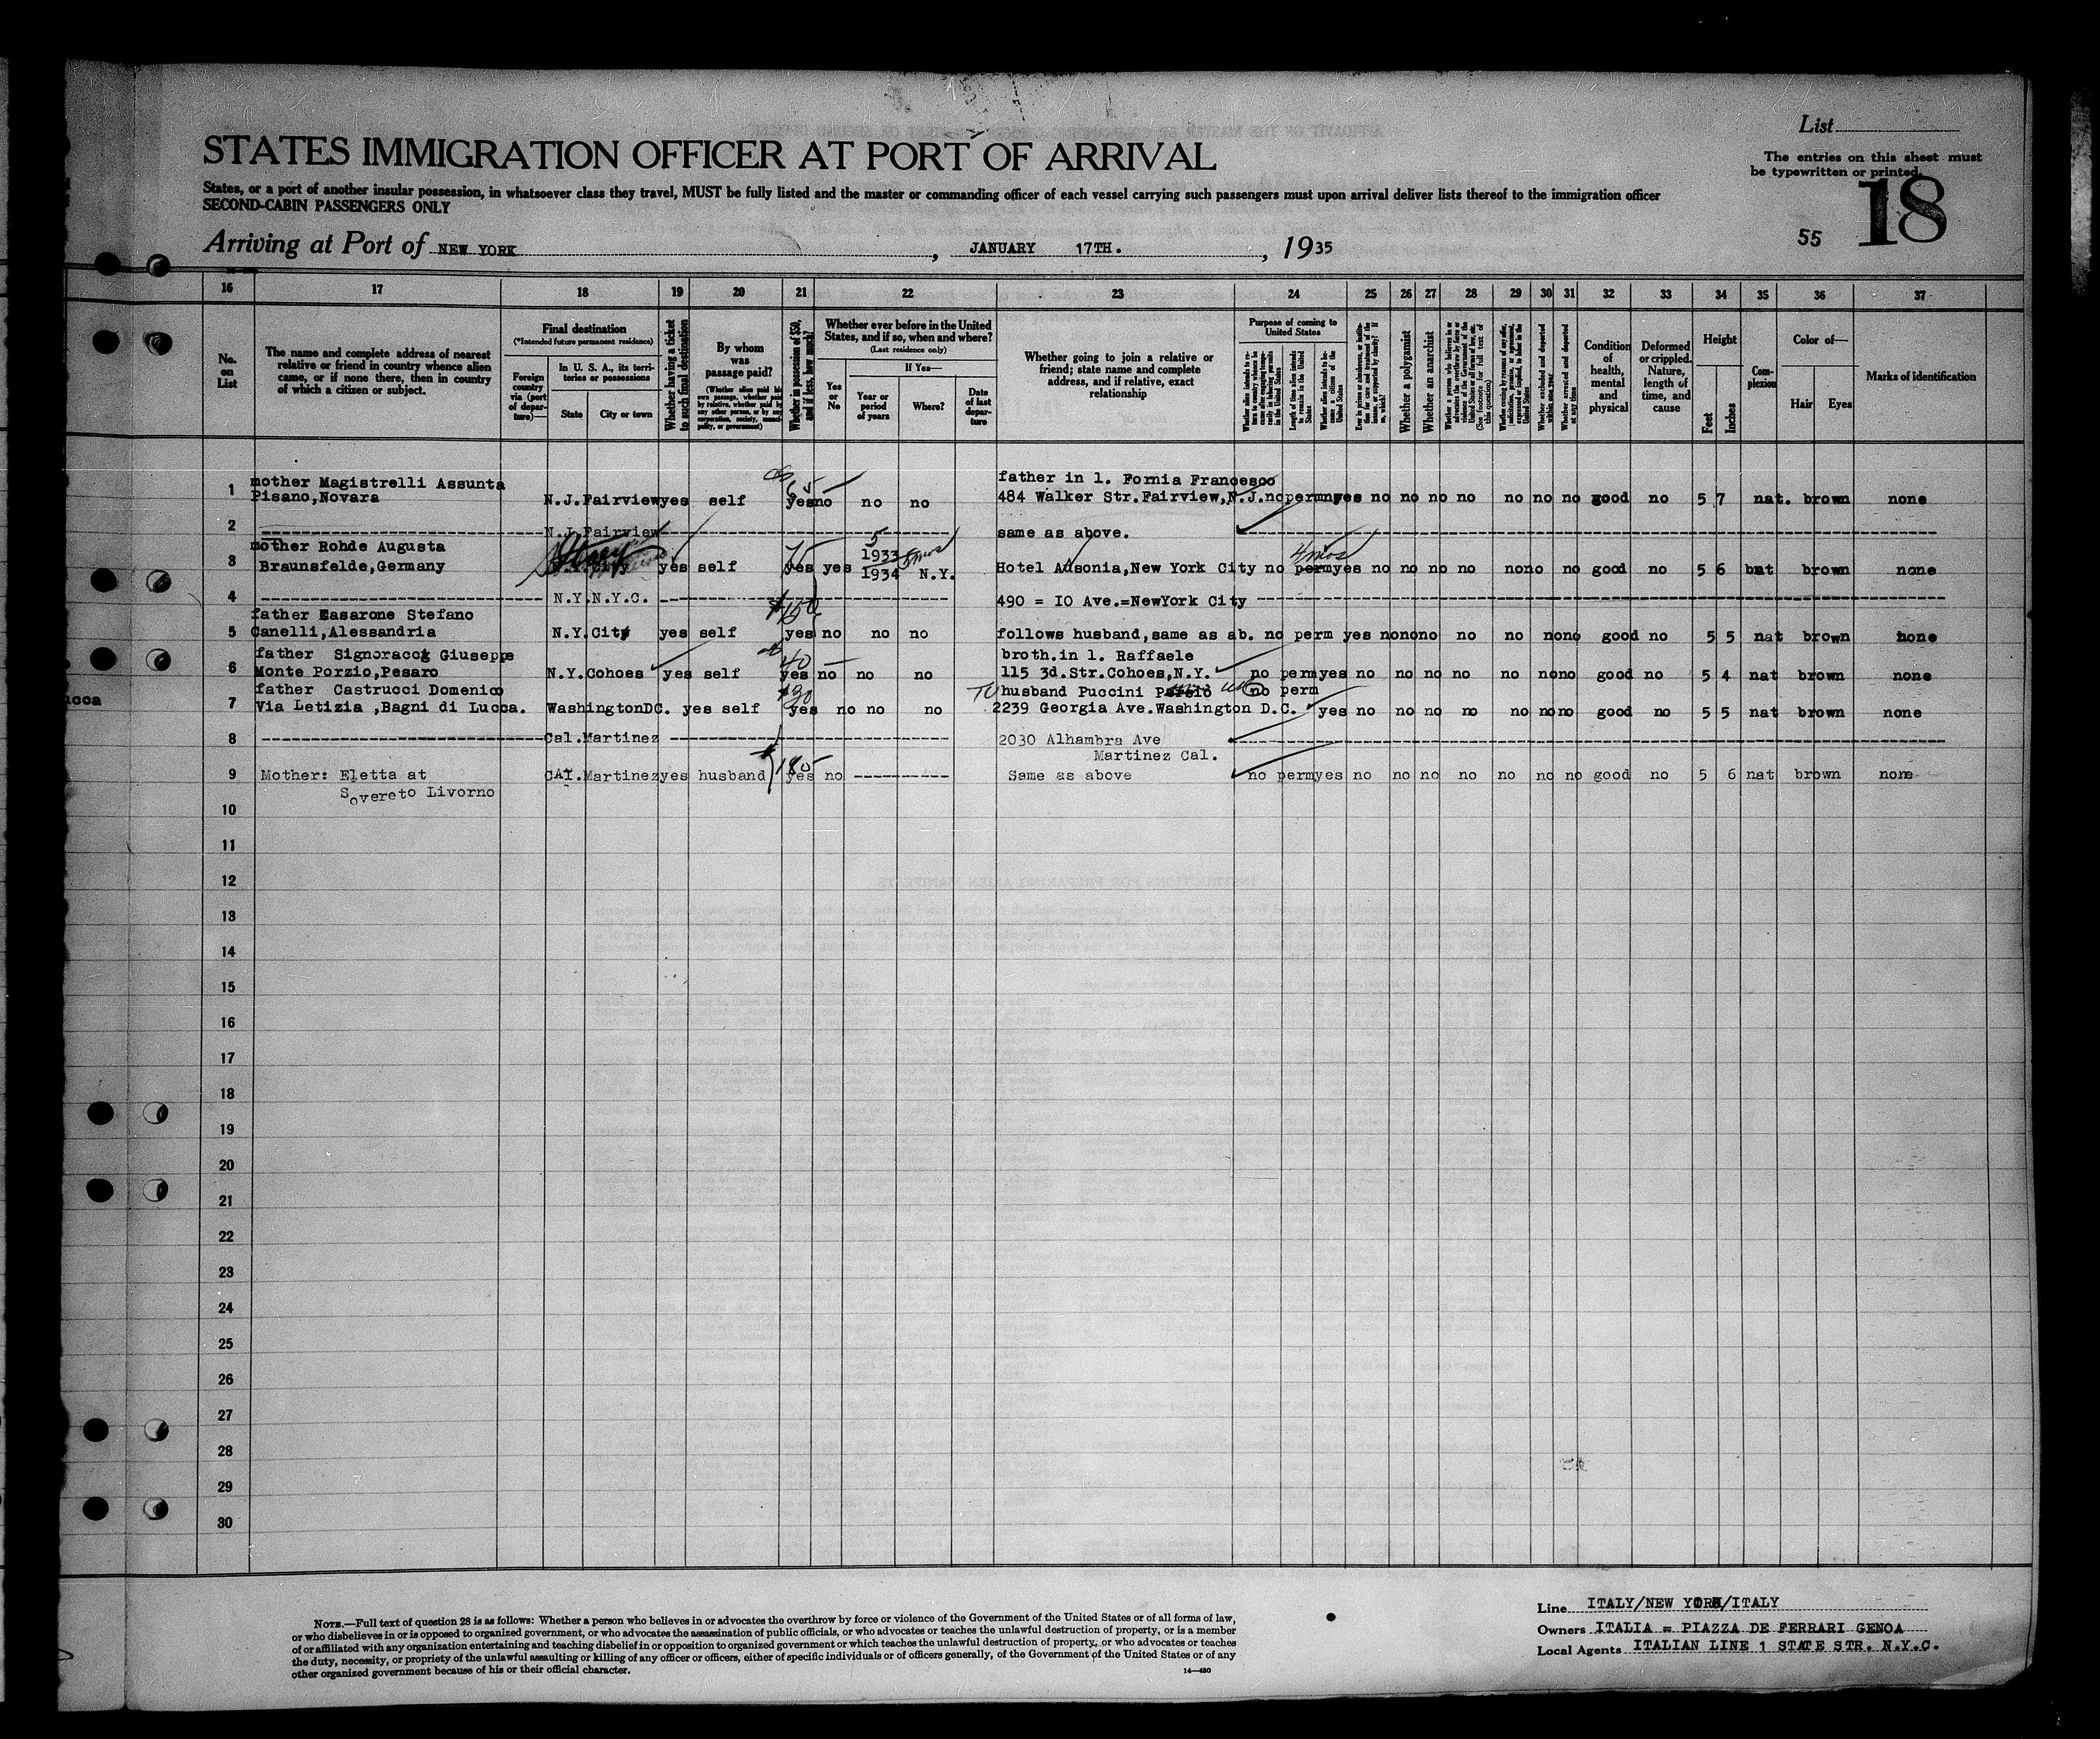 List
The entries on this sheet must
be typewritten or printed.
18
55
STATES IMMIGRATION OFFICER AT PORT OF ARRIVAL
States, or a port of another insular possession, in whatsoever class they travel, MUST be fully listed and the master or commanding officer of each vessel carrying such passengers must upon arrival deliver lists thereof to the immigration officer
SECOND-CABIN PASSENGERS ONLY
Arriving at Port of NEW YORK, JANUARY 17TH., 1935
16 17 18 19 20 21 22 23 24 25 26 27 28 29 30 31 32 33 34 35 36 37
No. on List
The name and complete address of nearest
relative or friend in country whence alien
came, or if none there, then in country
of which a citizen or subject.
Final destination
(*Intended future permanent residence)
Foreign country via (port of departure)—
In U. S. A., its territories or possessions
State City or town
Whether having a ticket to such final destination
By whom was passage paid?
Whether in possession of $50, and if less, how much?
Whether ever before in the United
States, and if so, when and where?
(Last residence only)
Yes or No
If Yes—
Year or period of years
Where?
Date of last departure
Whether going to join a relative or
friend; state name and complete
address, and if relative, exact
relationship
Purpose of coming to United States
Whether a polygamist
Whether an anarchist
Condition of health, mental and physical
Deformed or crippled. Nature, length of time, and cause
Height
Feet Inches
Complexion
Color of—
Hair Eyes
Marks of identification
1 mother Magistrelli Assunta
Pisano,Novara N.J. Fairview yes self yes no no no
65
father in l. Fornia Francesco
484 Walker Str.Fairview,N.J. no perm yes no no no no no no no good no 5 7 nat. brown none
2 N.J. Fairview same as above.
3 mother Rohde Augusta
Braunsfelde,Germany yes self yes yes 1933 1934 N.Y. Hotel Ausonia,New York City no perm yes no no no no no no no good no 5 6 nat brown none
75 5 5mos 4mos
4 N.Y. N.Y.C. 490 = IO Ave.=NewYork City
$150
5 father Casarone Stefano
Canelli,Alessandria N.Y. City yes self yes no no no follows husband,same as ab. no perm yes no no no no no no no good no 5 5 nat brown none
6 father Signoracci Giuseppe
Monte Porzio,Pesaro N.Y. Cohoes yes self yes no no no
40
broth.in l. Raffaele
115 3d.Str.Cohoes,N.Y. no perm yes no no no no no no no good no 5 4 nat brown none
ucca
7 father Castrucci Domenico
Via Letizia ,Bagni di Lucca. Washington DC. yes self yes no no no
husband Puccini no perm
2239 Georgia Ave.Washington D.C. yes no no no no no no no good no 5 5 nat brown none
8 Cal. Martinez 2030 Alhambra Ave
Martinez Cal.
9 Mother: Eletta at
Sovereto Livorno
CAI. Martinez yes husband yes no Same as above no perm yes no no no no no no no good no 5 6 nat brown none
$185
10
11
12
13
14
15
16
17
18
19
20
21
22
23
24
25
26
27
28
29
30
NOTE.—Full text of question 28 is as follows: Whether a person who believes in or advocates the overthrow by force or violence of the Government of the United States or of all forms of law,
or who disbelieves in or is opposed to organized government, or who advocates the assassination of public officials, or who advocates or teaches the unlawful destruction of property, or is a member
of or affiliated with any organization entertaining and teaching disbelief in or opposition to organized government or which teaches the unlawful destruction of property, or who advocates or teaches
the duty, necessity, or propriety of the unlawful assaulting or killing of any officer or officers, either of specific individuals or of officers generally, of the Government of the United States or of any
other organized government because of his or their official character.
14—480
Line ITALY/NEW YORK/ITALY
Owners ITALIA = PIAZZA DE FERRARI GENOA
Local Agents ITALIAN LINE 1 STATE STR. N.Y.C.